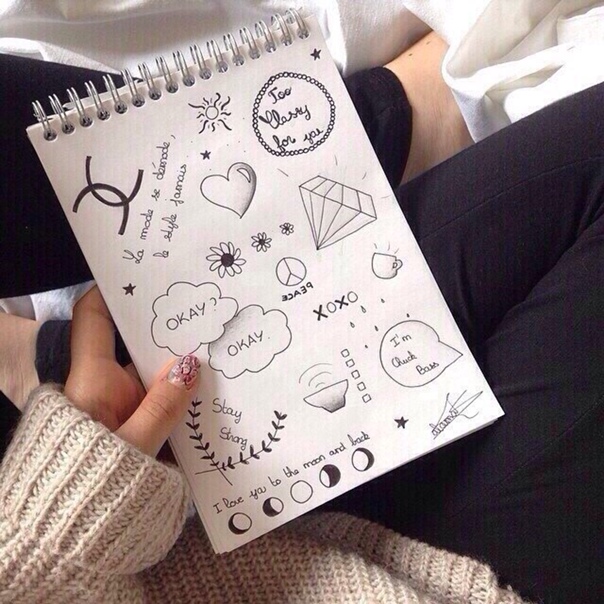 Too
Classy
for you
La mode se démode,
le style jamais
PEACE
XOXO
OKAY?
OKAY.
I'm
Chuck
Bass
Stay
Strong
I love you to the moon and back